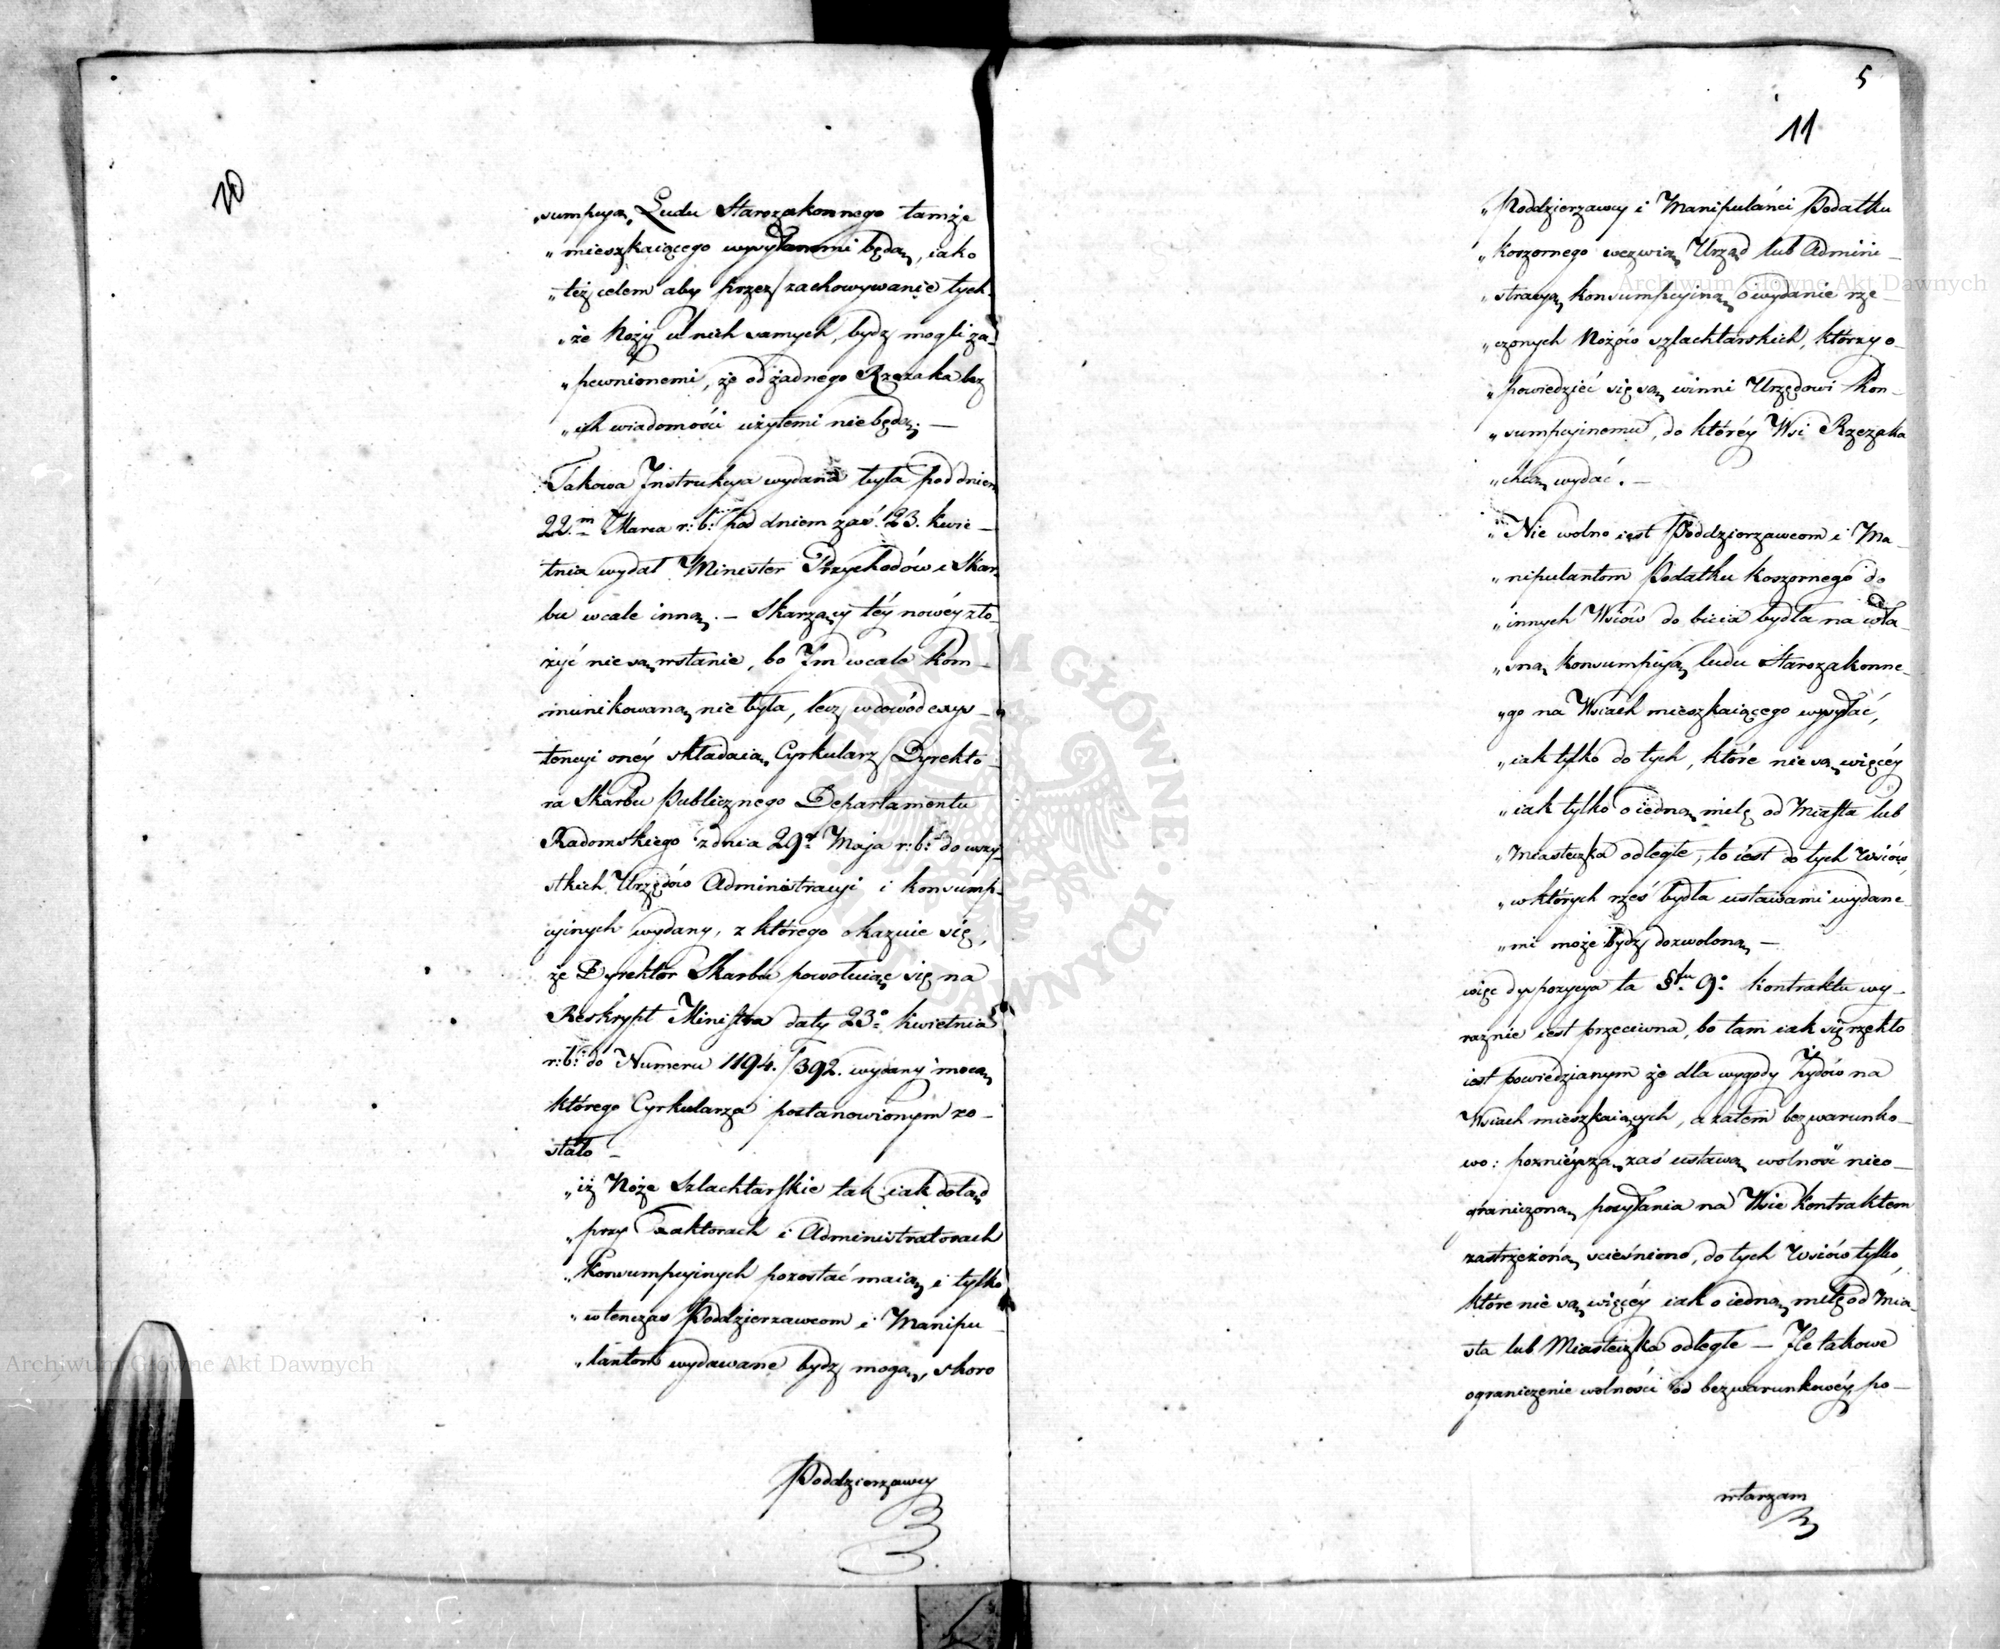 10
„sumpcyą Ludu Starozakonnego tamże
„mieszkaiącego wysyłanemi będą, iako
„też celem aby przez zachowywanie tych
„że Noży u nich samych, bydz mogli za-
„pewnionemi, że od żadnego Rzezaka bez
„ich wiadomości użytemi nie będą. —
Takowa Instrukcya wydana była pod dniem
22.m Marca r: b: pod dniem zaś 23. kwie-
tnia wydał Minister Przychodów i Skar-
bu wcale inną. — Skarzący téy nowéy zło-
żyć nie są wstanie, bo Im wcale kom-
munikowaną nie była, lecz wdowód exys-
tencyi onéy składaią Cyrkularz Dyrekto-
ra Skarbu Publicznego Departamentu
Radomskiego z dnia 29o Maja r: b: do wszy-
stkich Urzędów Administracyi i konsump-
cyinych wydany, z którego okazuie się,
że Dyrektor Skarbu powołuiąc się na
Reskrypt Ministra daty 23o kwietnia
r: b: do Numeru 1194./392. wydany mocą
którego Cyrkularza postanowionym zo-
stało —
„iż Noże Szlachtarskie tak iak dotąd
„przy Traktorach i Administratorach
„Konsumpcyinych pozostać maią i tylko
„wtenczas Poddzierzawcom i Manipu-
„lantom wydawane bydz mogą, skoro
Poddzierzawcy
5
11
„Poddzierzawcy i Manipulánci Podatku
„koszernego wezwią Urząd lub Admini-
„stracyą konsumpcyiną o wydanie rze-
„czonych Nożów szlachtarskich, którzy o-
„powiedzieć się są winni Urzędowi Kon-
„sumpcyinemu, do któréy Wsi Rzezaka
„chcą wydać. —
„Nie wolno iest Poddzierzawcom i Ma-
„nipulantom Podatku koszernego do
„innych Wsiów do bicia bydła na wła-
„sną konsumpcyą ludu Starozakonne-
„go na Wsiach mieszkaiącego wysyłać,
„iak tylko do tych, które nie są więcéy
„iak tylko o iedną milę od Miasta lub
„Miasteczka odległe, to iest do tych Wsiów,
„w których rzeź bydła ustawami wydane-
„mi może bydz dozwoloną —
więc dyspozycya ta §fu 9o kontraktu wy-
raznie iest przeciwna, bo tam iak się rzekło
iest powiedzianym że dla wygody Żydów na
Wsiach mieszkaiących, a zatem bezwarunko-
wo: poznieyszą zaś ustawą wolność nieo-
graniczoną posyłania na Wsie kontraktem
zastrzeżoną scieśniono, do tych Wsiów tylko,
które nie są więcéy iak o iedną milę od Mia-
sta lub Miasteczka odległe — Ile takowe
ograniczenie wolności od bezwarunkowéy po-
wtarzam
Archiwum Główne Akt Dawnych
Archiwum Główne Akt Dawnych
ARCHIWUM GŁÓWNE · AKT DAWNYCH ·